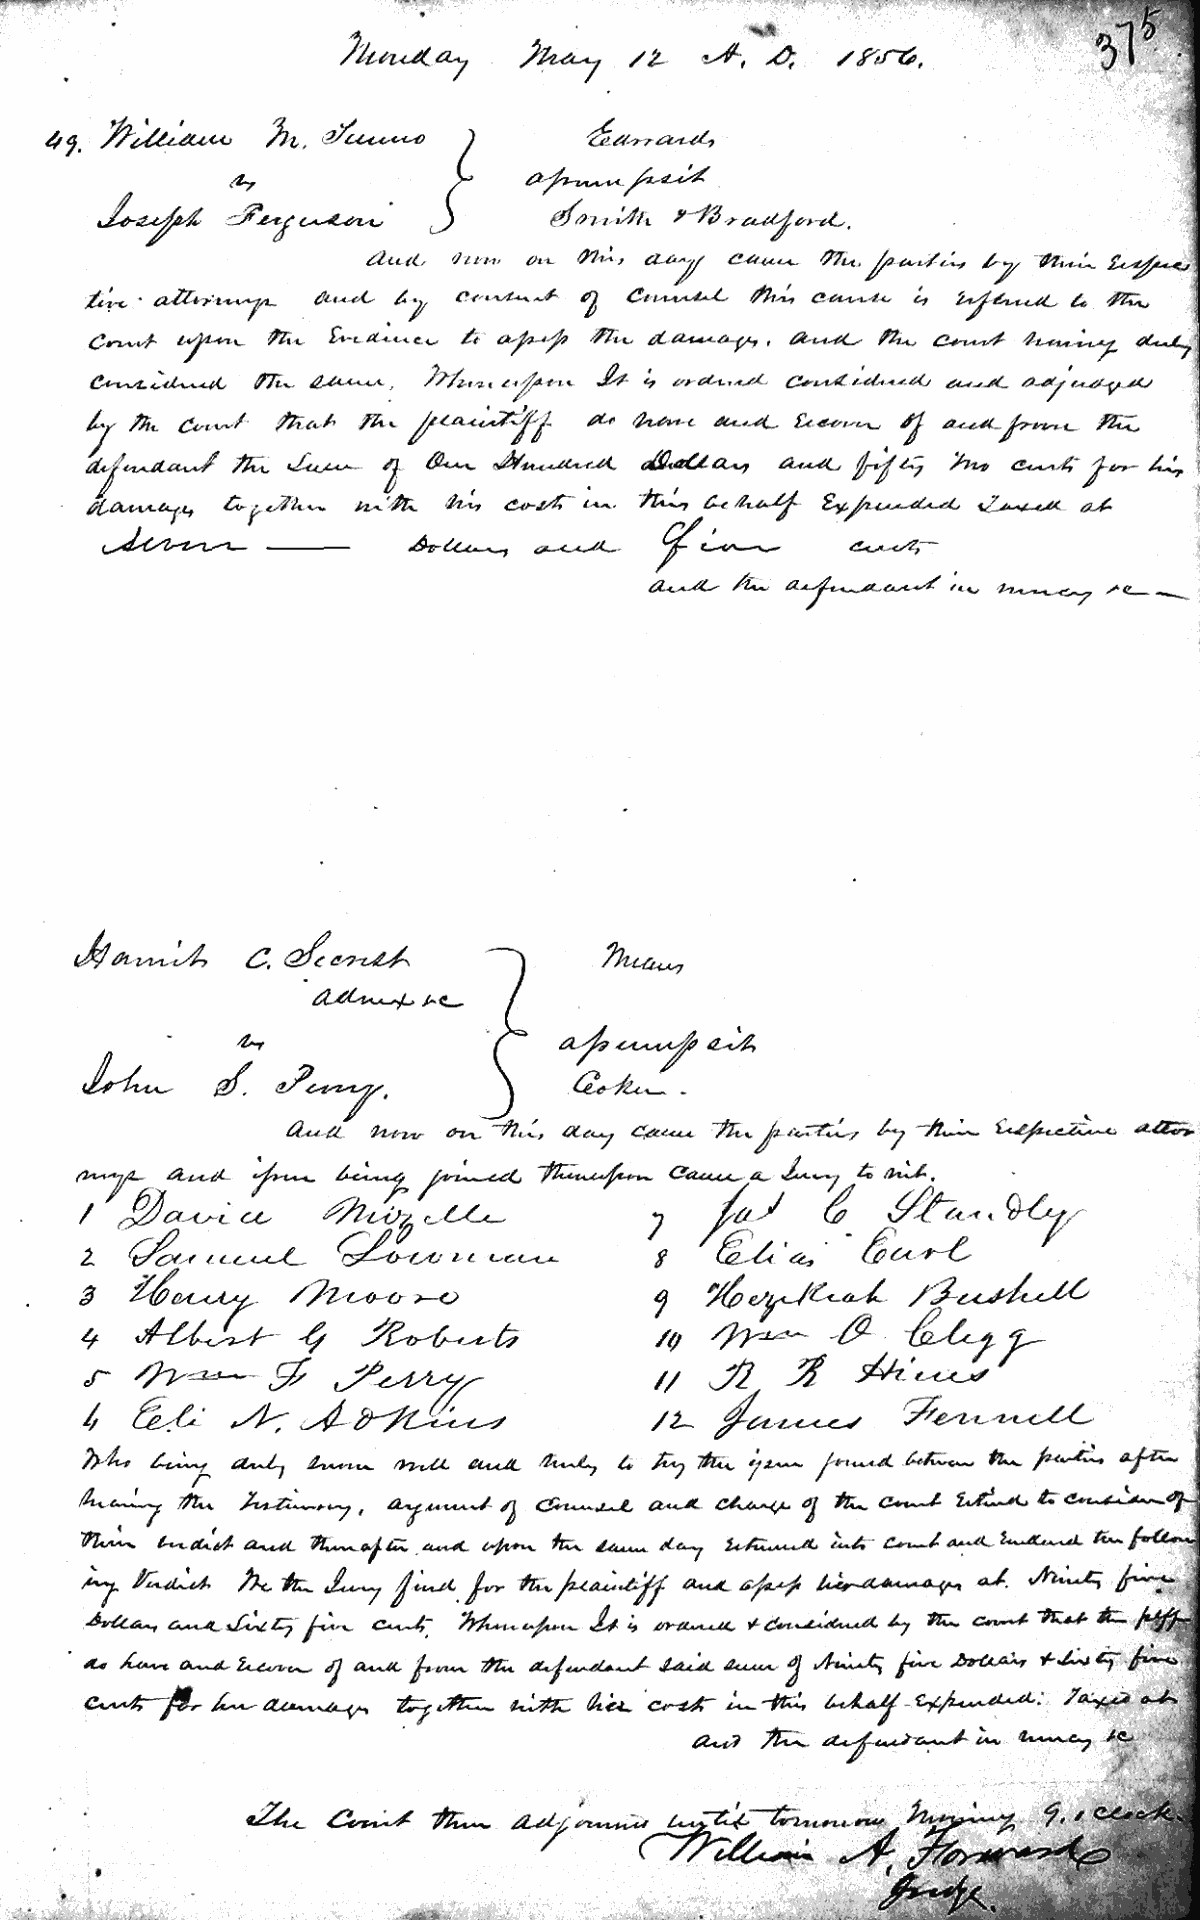 375
Monday May 12 A. D. 1856.
49. William M. Tunno Edwards
vs assumpsit
Joseph Ferguson Smith & Bradford.
And now on this day came the parties by their respec
tive attorneys and by consent of Counsel this cause is referred to the
Court upon the Evidence to assess the damages. and the court having duly
considered the same. Whereupon It is ordered considered and adjudged
by the court that the plaintiff do have and recover of and from the
defendant the Sum of One Hundred Dollars and fifty two cents for his
damages together with his costs in this behalf Expended Taxed at
Seven — Dollars and Five cents
and the defendant in mercy &c —
Harriet C. Secrest Means
admx &c
vs assumpsit
John S. Perry. Coker.
And now on this day came the parties by their respective attor
neys and issue being joined thereupon came a Jury to wit.
1 David Mizelle 7 Jas C Standly
2 Samuel Lowman 8 Elias Earl
3 Henry Moore 9 Hezekiah Bushell
4 Albert G Roberts 10 Wm O Clegg
5 Wm F Perry 11 R R Hines
6 Eli N. Adkins 12 James Fennell
Who being duly sworn well and truly to try the issue joined between the parties after
hearing the Testimony, argument of Counsel and charge of the court retired to consider of
their verdict and thereafter and upon the same day returned into court and rendered the follow
ing Verdict We the Jury find for the plaintiff and assess her damages at Ninety five
Dollars and Sixty five cents. Whereupon It is ordered & considered by the court that the plff
do have and recover of and from the defendant said sum of Ninety five Dollars & Sixty five
cents for her damages together with her costs in this behalf Expended. Taxed at
and the defendant in mercy &c
The Court then adjourned until tomorrow Morning 9. o clock.
William A. Forward
Judge.